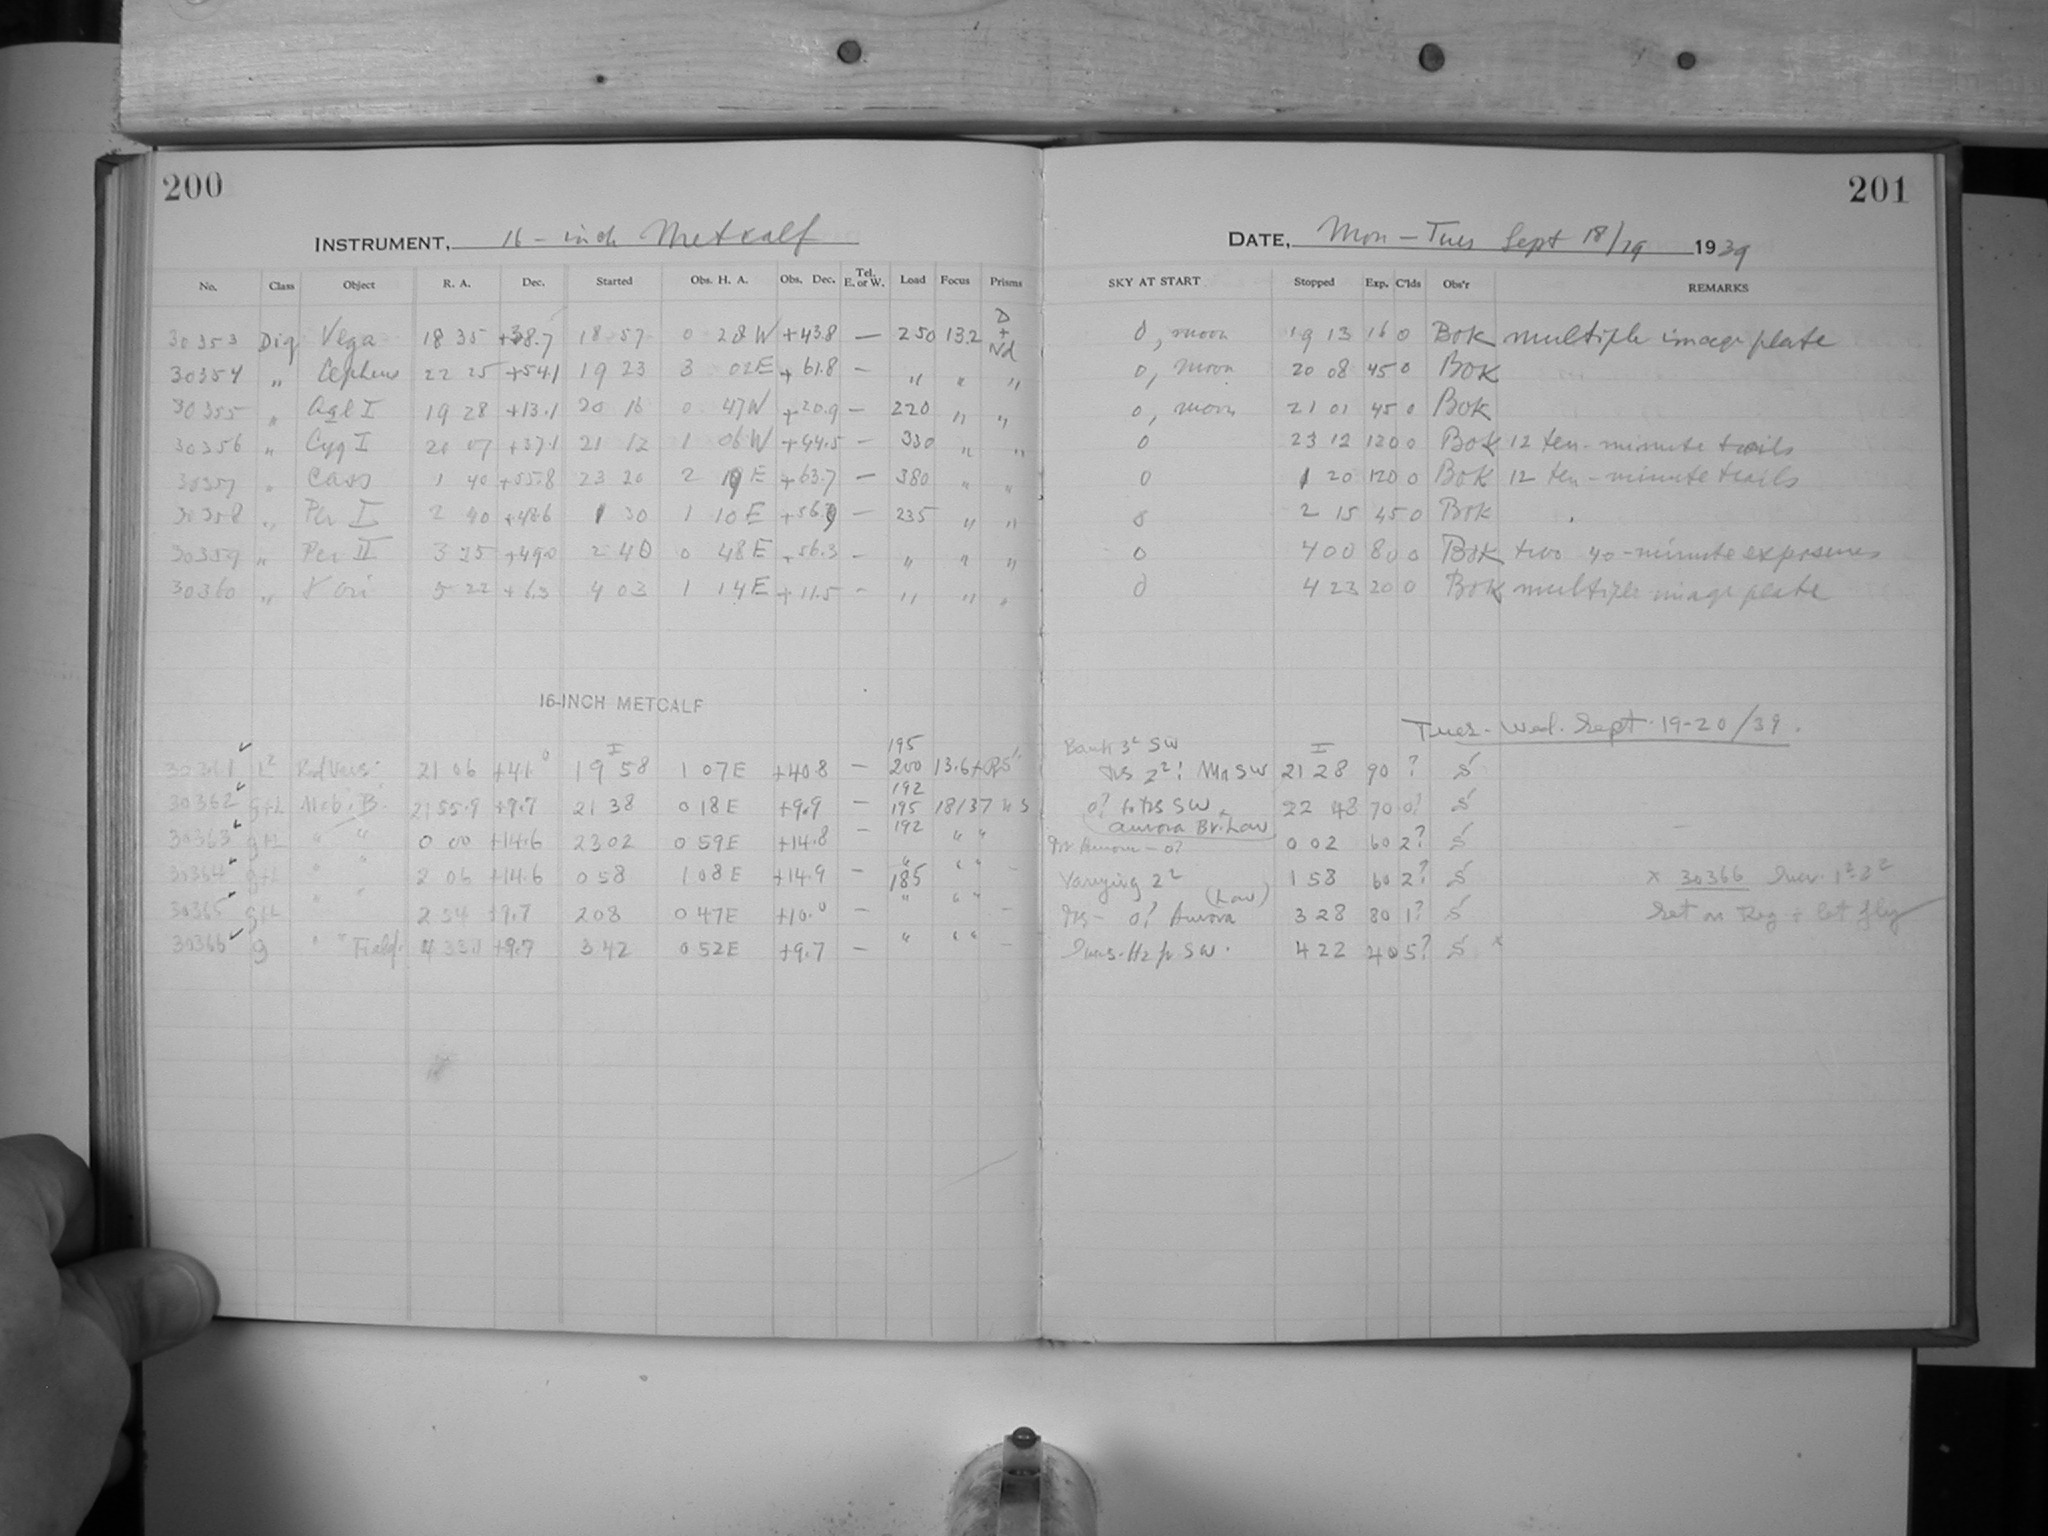 200
INSTRUMENT, 16-inch Metcalf
No. Class Object R. A. Dec. Started Obs. H. A. Obs. Dec. Tel. E. or W. Load Focus Prisms
30353 Vega 18 35 +38.7 18 57 0 28 W +43.8 — 250 13.2 D + Nd
30354 " Cepheus 22 25 +54.1 19 23 3 02 E +61.8 — " " "
30355 " Aql I 19 28 +13.1 20 16 0 47 W +20.9 — 220 " "
30356 " Cyg I 20 07 +37.1 21 12 1 06 W +44.5 — 330 " "
30357 " Cass 1 40 +55.8 23 20 2 19 E +63.7 — 380 " "
30358 " Per I 2 40 1 30 1 10 E — 235 " "
30359 " Per II 3 25 +49.0 2 40 0 48 E +56.3 — " " "
30360 " γ Ori 5 22 +6.3 4 03 1 14 E +11.5 — " " "
16-INCH METCALF
30361 21 06 +41.0 I 19 58 1 07 E +40.8 — 195 200 13.6
30362 g+L 21 55.9 +9.7 21 38 0 18 E +9.9 — 192 195 18/37
30363 g+L " " 0 00 +14.6 23 02 0 59 E +14.8 — 192 " "
30364 g+L " " 2 06 +14.6 0 58 1 08 E +14.9 — " 185 " " —
30365 g+L " " 2 54 +9.7 2 08 0 47 E +10.0 — " " " —
30366 g " " Field. +9.7 3 42 0 52 E +9.7 — " " " —
201
DATE, Mon - Tues Sept 18/19 1939
SKY AT START Stopped Exp. C'lds Obs'r REMARKS
0, moon 19 13 16 0 Bok multiple image plate
0, moon 20 08 45 0 Bok
0, moon 21 01 45 0 Bok
0 23 12 120 0 Bok 12 ten-minute trails
0 1 20 120 0 Bok 12 ten-minute trails
0 2 15 45 0 Bok
0 4 00 80 0 Bok two 40-minute exposures
0 4 23 20 0 Bok multiple image plate
Tues - Wed. Sept. 19-20/39.
Bank 3² SW
2²! SW I 21 28 90 ? S
0? SW 22 48 70 0? S
Aurora Br. Low
Aurora - 0? 0 02 60 2? S
Varying 2² 1 58 60 2? S x 30366
(Low)
0? Aurora 3 28 80 1? S Set on Reg + let fly
SW. 4 22 40 5? S x